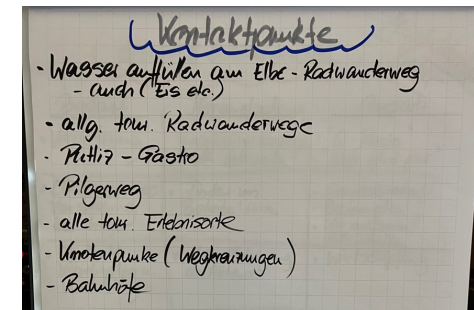 Kontaktpunkte
- Wasser auffüllen am Elbe-Radwanderweg
- auch (Eis etc.)
- allg. tour. Radwanderwege
- Gastro
- Pilgerweg
- alle tour. Erlebnisorte
- Knotenpunke (Wegkreuzungen)
- Bahnhöfe